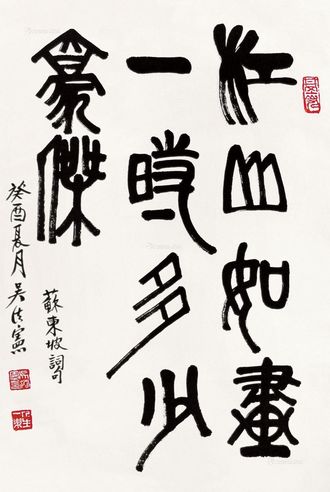 江山如畫
一時多少
豪傑
蘇東坡詞
癸酉夏月吴法憲